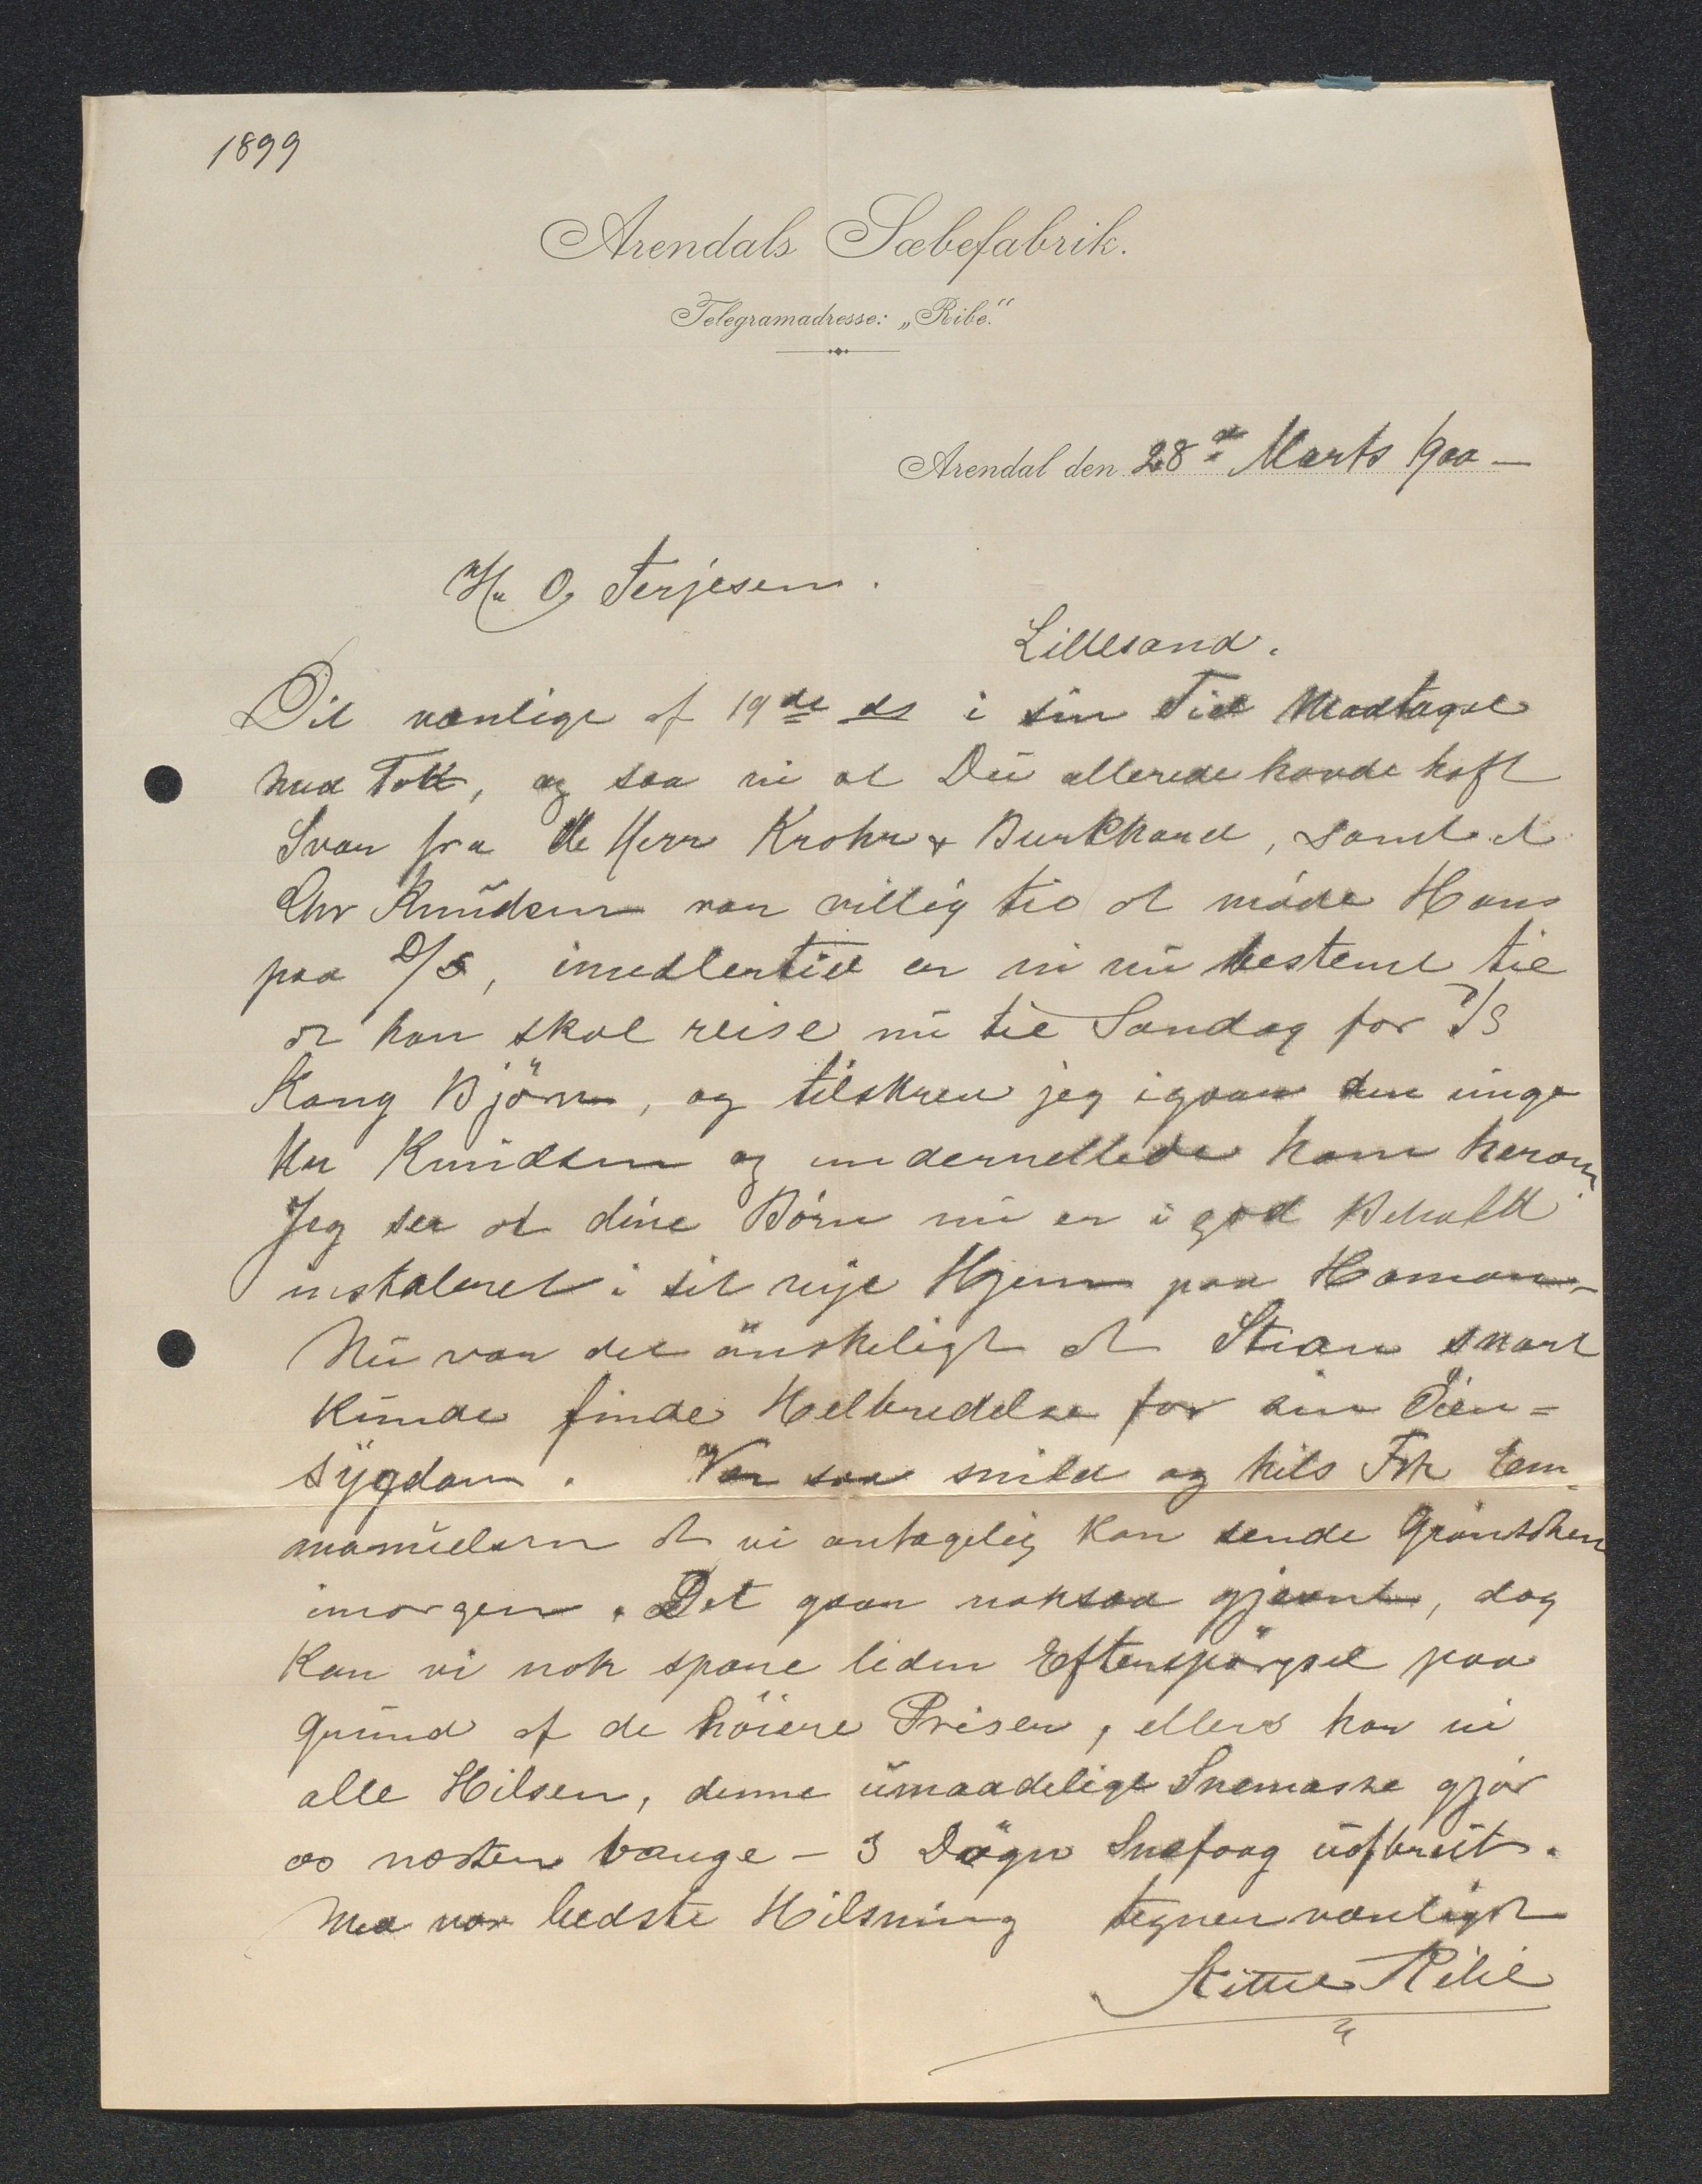 1899
Arendals Sæbefabrik.
Telegramadresse: „Ribe."
Arendal den 28de Marts 1900 —
Hr O, Terjesen.
Lillesand.
Dit venlige af 19de ds i sin Tid Modtaget
med Takk, og saa vi at Dü allerede havde haft
Svar fra de Herr Krohn & Burkhard, samt at
Chr Knüdsen var villig til at møde Hans
paa D/S, imidlertid er vi nü bestemt til
at han skal reise nü til Søndag for D/S
Kong Björn, og tilskrev jeg igaar den ünge
Hr Knüdsen og underrettede ham herom
Jeg ser at dine Börn nü er i god Behold
instaleret i sit nye Hjem paa Hommen
Nü var det önskeligt at Stian snart
Künde finde Helbredelse for sin Öien=
sygdom. Vær saa snild og hils Frk Em-
manüelsen at vi antagelig Kan sende Grönsåpen
imorgen. Det gaar noksaa gjevnt, dog
Kan vi nok spore liden Efterspörgsel paa
Grund af de höiere Priser, ellers har vi
alle Hilsen, denne ümaadelige Snemasse gjör
os næsten bange – 3 Dögn Snefaag üafbrüt.
Med vor bedste Hilsning tegner venligst
Kittil Ribe